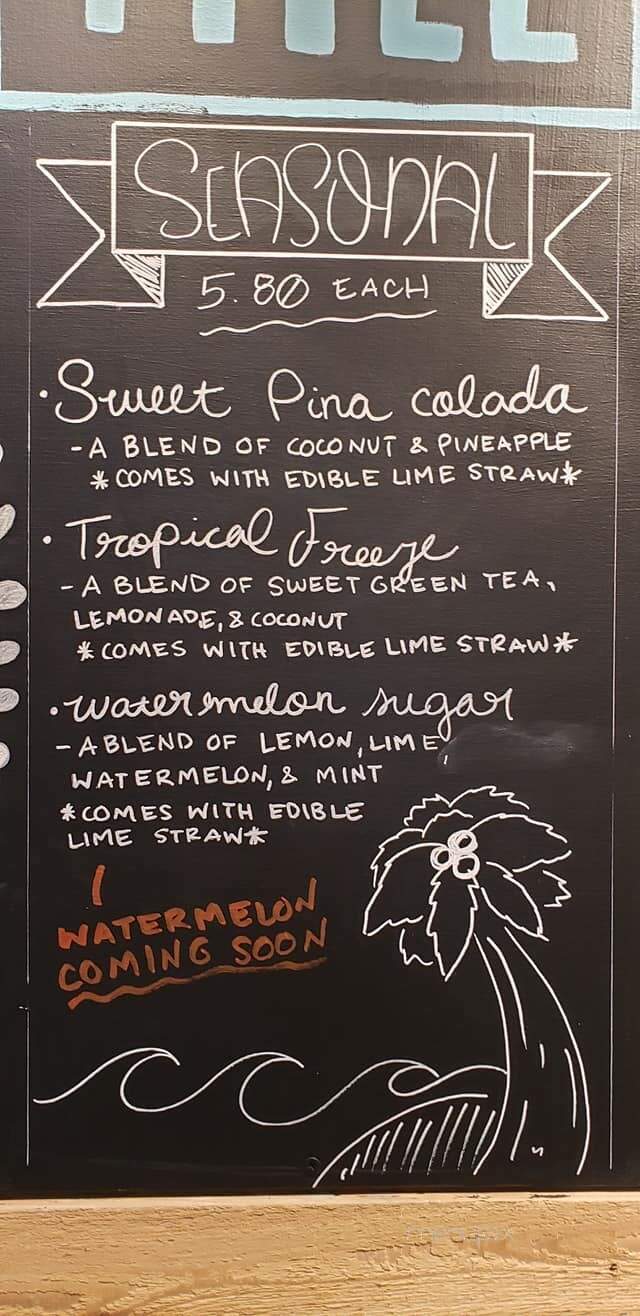 SEASONAL
5.80 EACH
· Sweet Pina colada
- A BLEND OF COCONUT & PINEAPPLE
* COMES WITH EDIBLE LIME STRAW*
· Tropical Freeze
- A BLEND OF SWEET GREEN TEA,
LEMONADE, & COCONUT
* COMES WITH EDIBLE LIME STRAW*
· watermelon sugar
- A BLEND OF LEMON, LIME,
WATERMELON, & MINT
* COMES WITH EDIBLE
LIME STRAW*
WATERMELON
COMING SOON